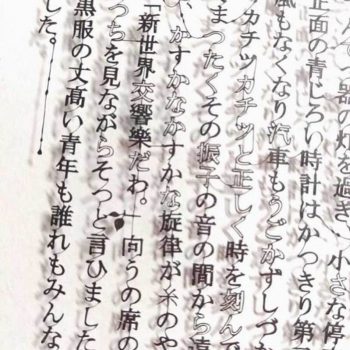 器の灯を過ぎ、小さな停
正面の青じろい時計はかつきり第
風もなくなり汽車もうごかずしづ
カチツカチツと正しく時を刻んで
まつたくその振子の音の間から遠
、かすかなかすかな旋律が糸のや
「新世界交響樂だわ。」向うの席の
つちを見ながらそつと言ひました
黒服の丈髙い青年も誰れもみんな
した。